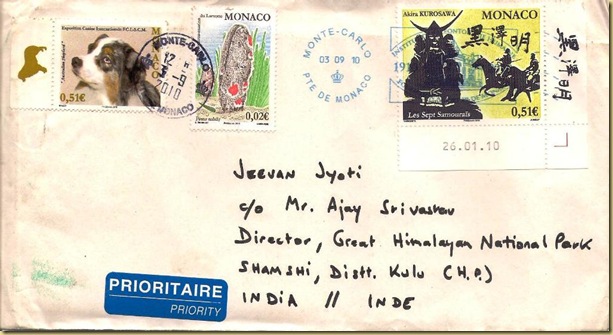 Exposition Canine Internationale
MONACO
0,51€
MONTE-CARLO
12
3-9
2010
MONACO
MONACO
0,02€
MONTE-CARLO
03 09 10
PTE DE MONACO
Akira KUROSAWA
MONACO
黒澤明
Les Sept Samouraïs
0,51€
黒澤明
26.01.10
JEEVAN JYOTI
c/o Mr. Ajay Srivastav
Director, Great Himalayan National Park
SHAMSHI, Distt. Kulu (H.P.)
INDIA // INDE
PRIORITAIRE
PRIORITY